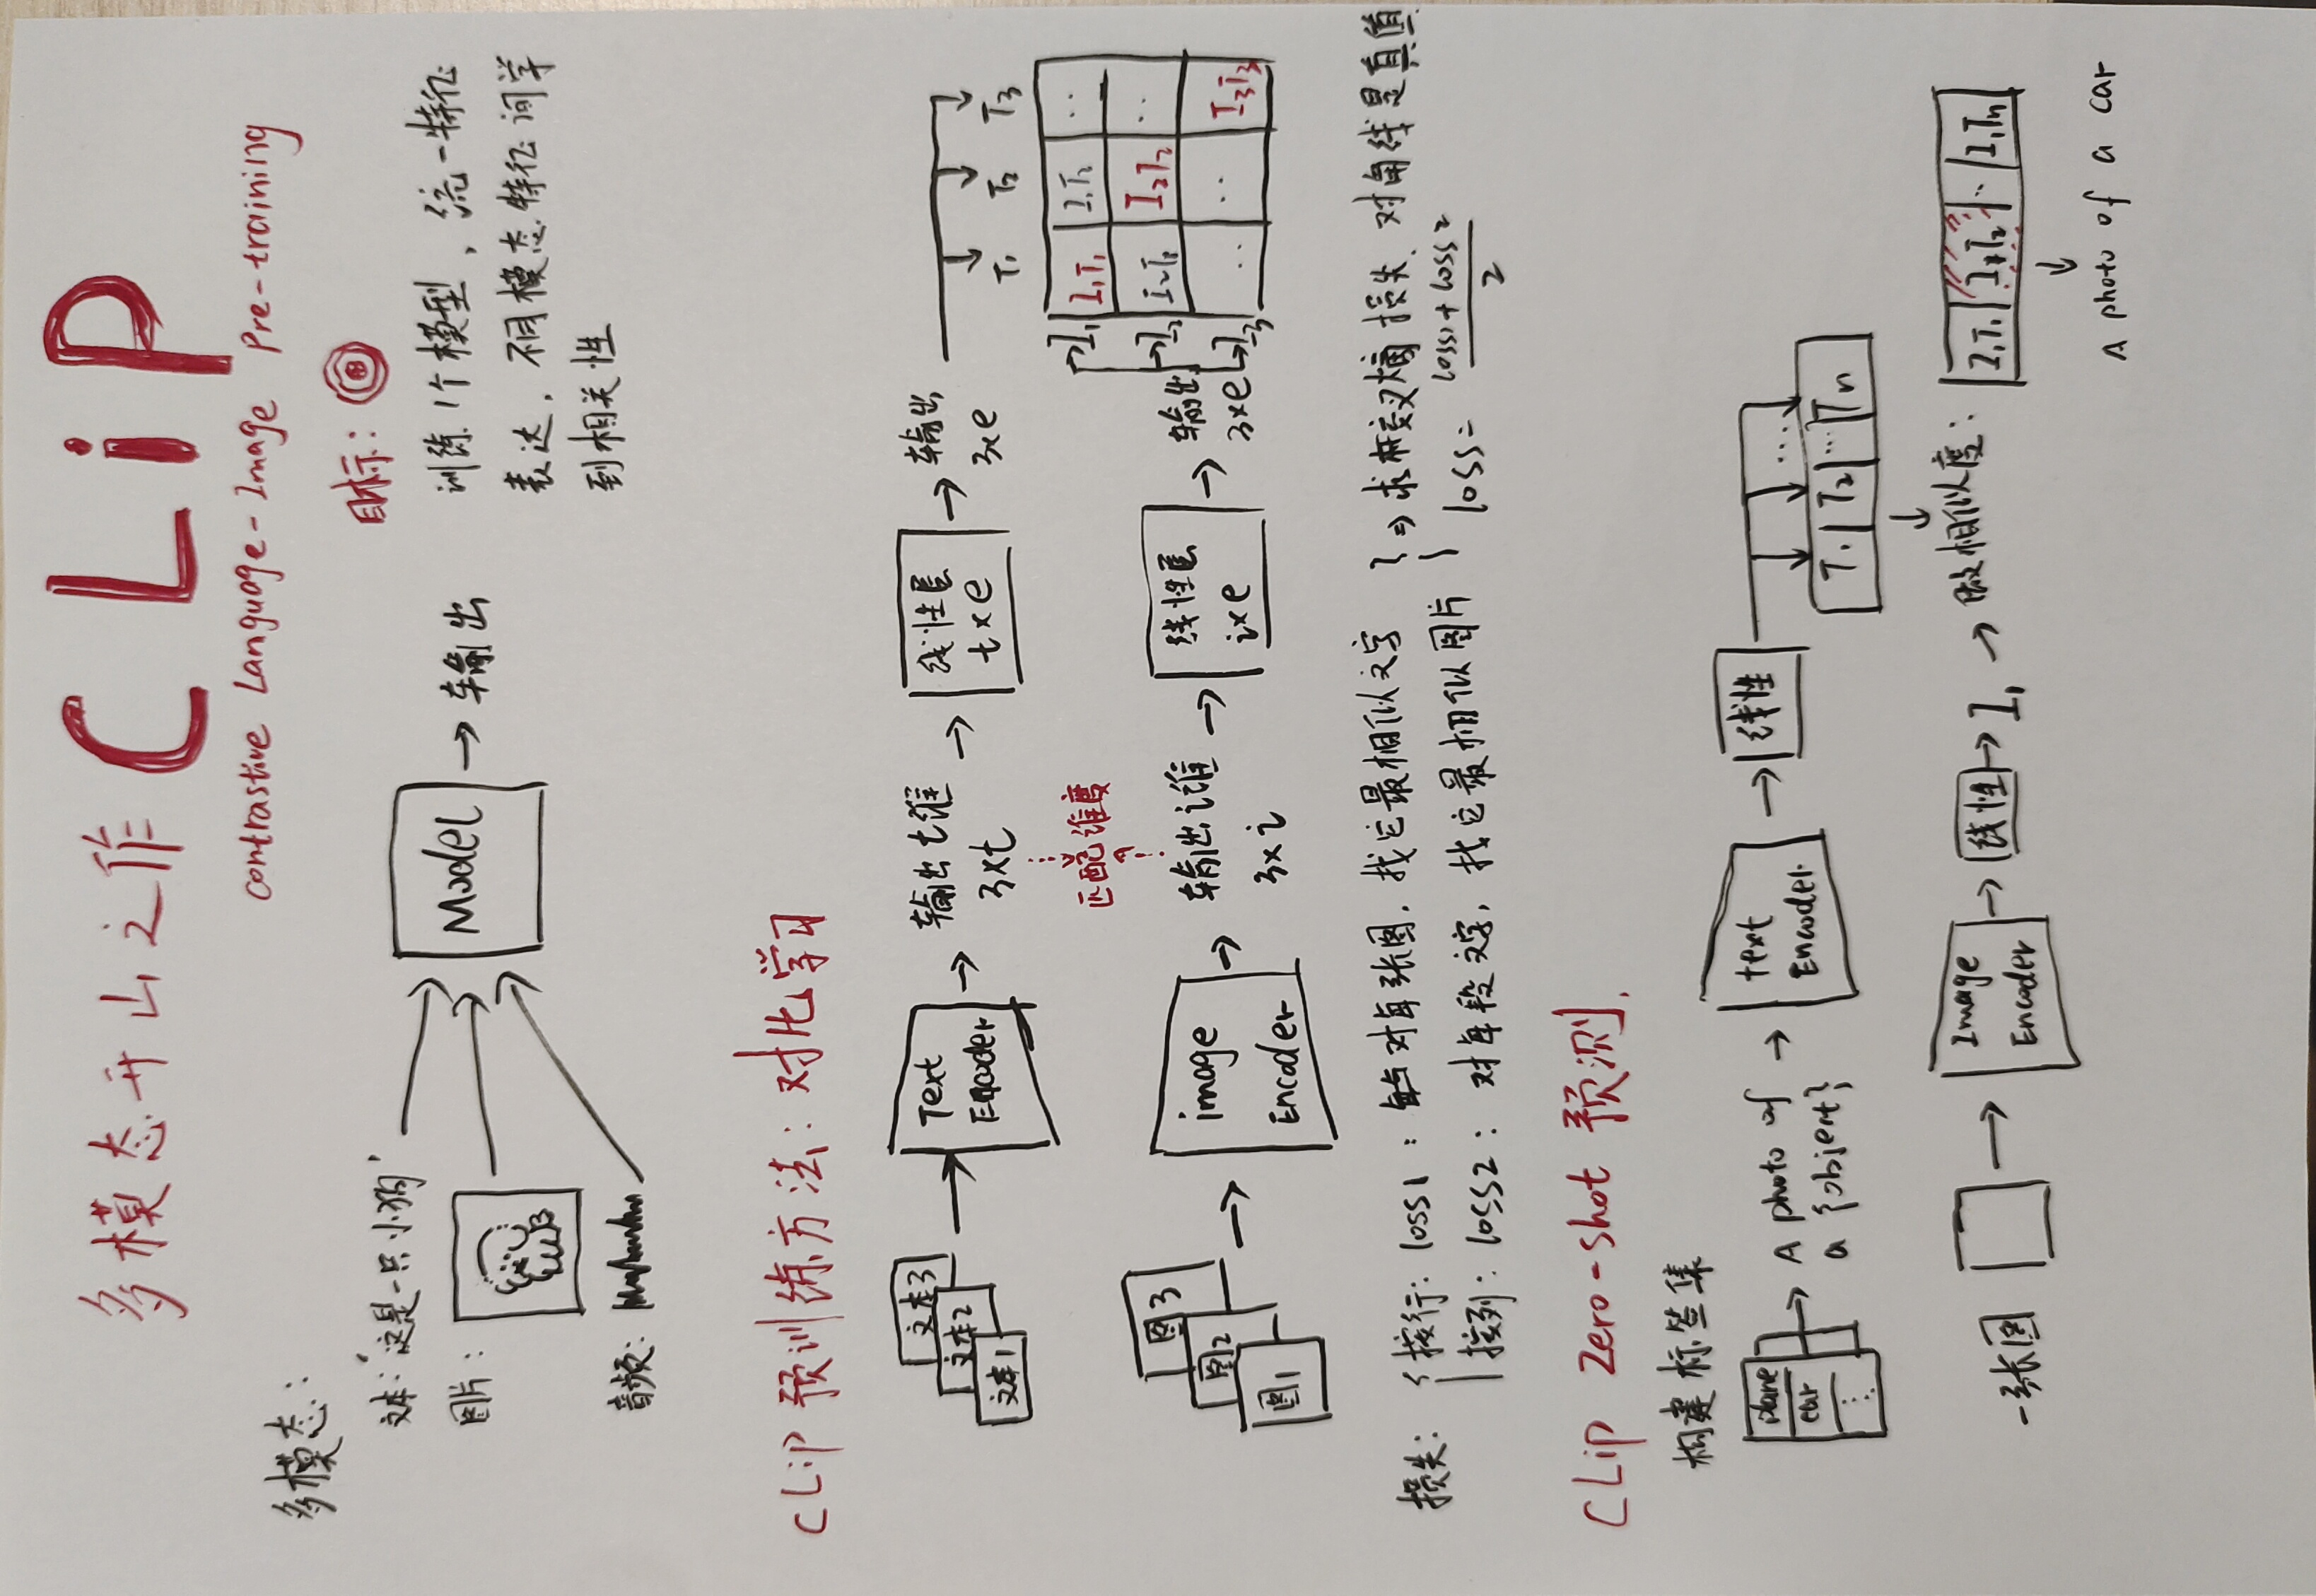 多模态开山之作 CLiP
contrastive Language-Image Pre-training
多模态：
文本：'这是一只小狗'
图片：
音频：
Model
输出
目标：
训练1个模型，统一特征
表达，不同模态特征间学
到相关性
CLiP 预训练方法：对比学习
文本3
文本2
文本1
Text
Encoder
输出t维
3×t
线性层
t×e
输出
3×e
T₁ T₂ T₃
匹配维度
图3
图2
图1
image
Encoder
输出i维
3×i
线性层
i×e
输出
3×e
I₁ I₁T₁ I₁T₂ ..
I₂ I₂T₁ I₂T₂ ..
I₃ .. .. I₃T₃
损失：
按行：loss1：对每张图，找它最相似文字
按列：loss2：对每段文字，找它最相似图片
⇒ 求交叉熵损失，对角线是真值
loss= (loss1+loss2)/2
CLiP zero-shot 预测.
构建标签集
plane
car
⋮
A photo of
a {object}
text
Encoder
线性
....
T₁ T₂ ... Tn
一张图
Image
Encoder
线性
I₁
做相似度：
I₁T₁ I₁T₂ .. I₁Tn
A photo of a car